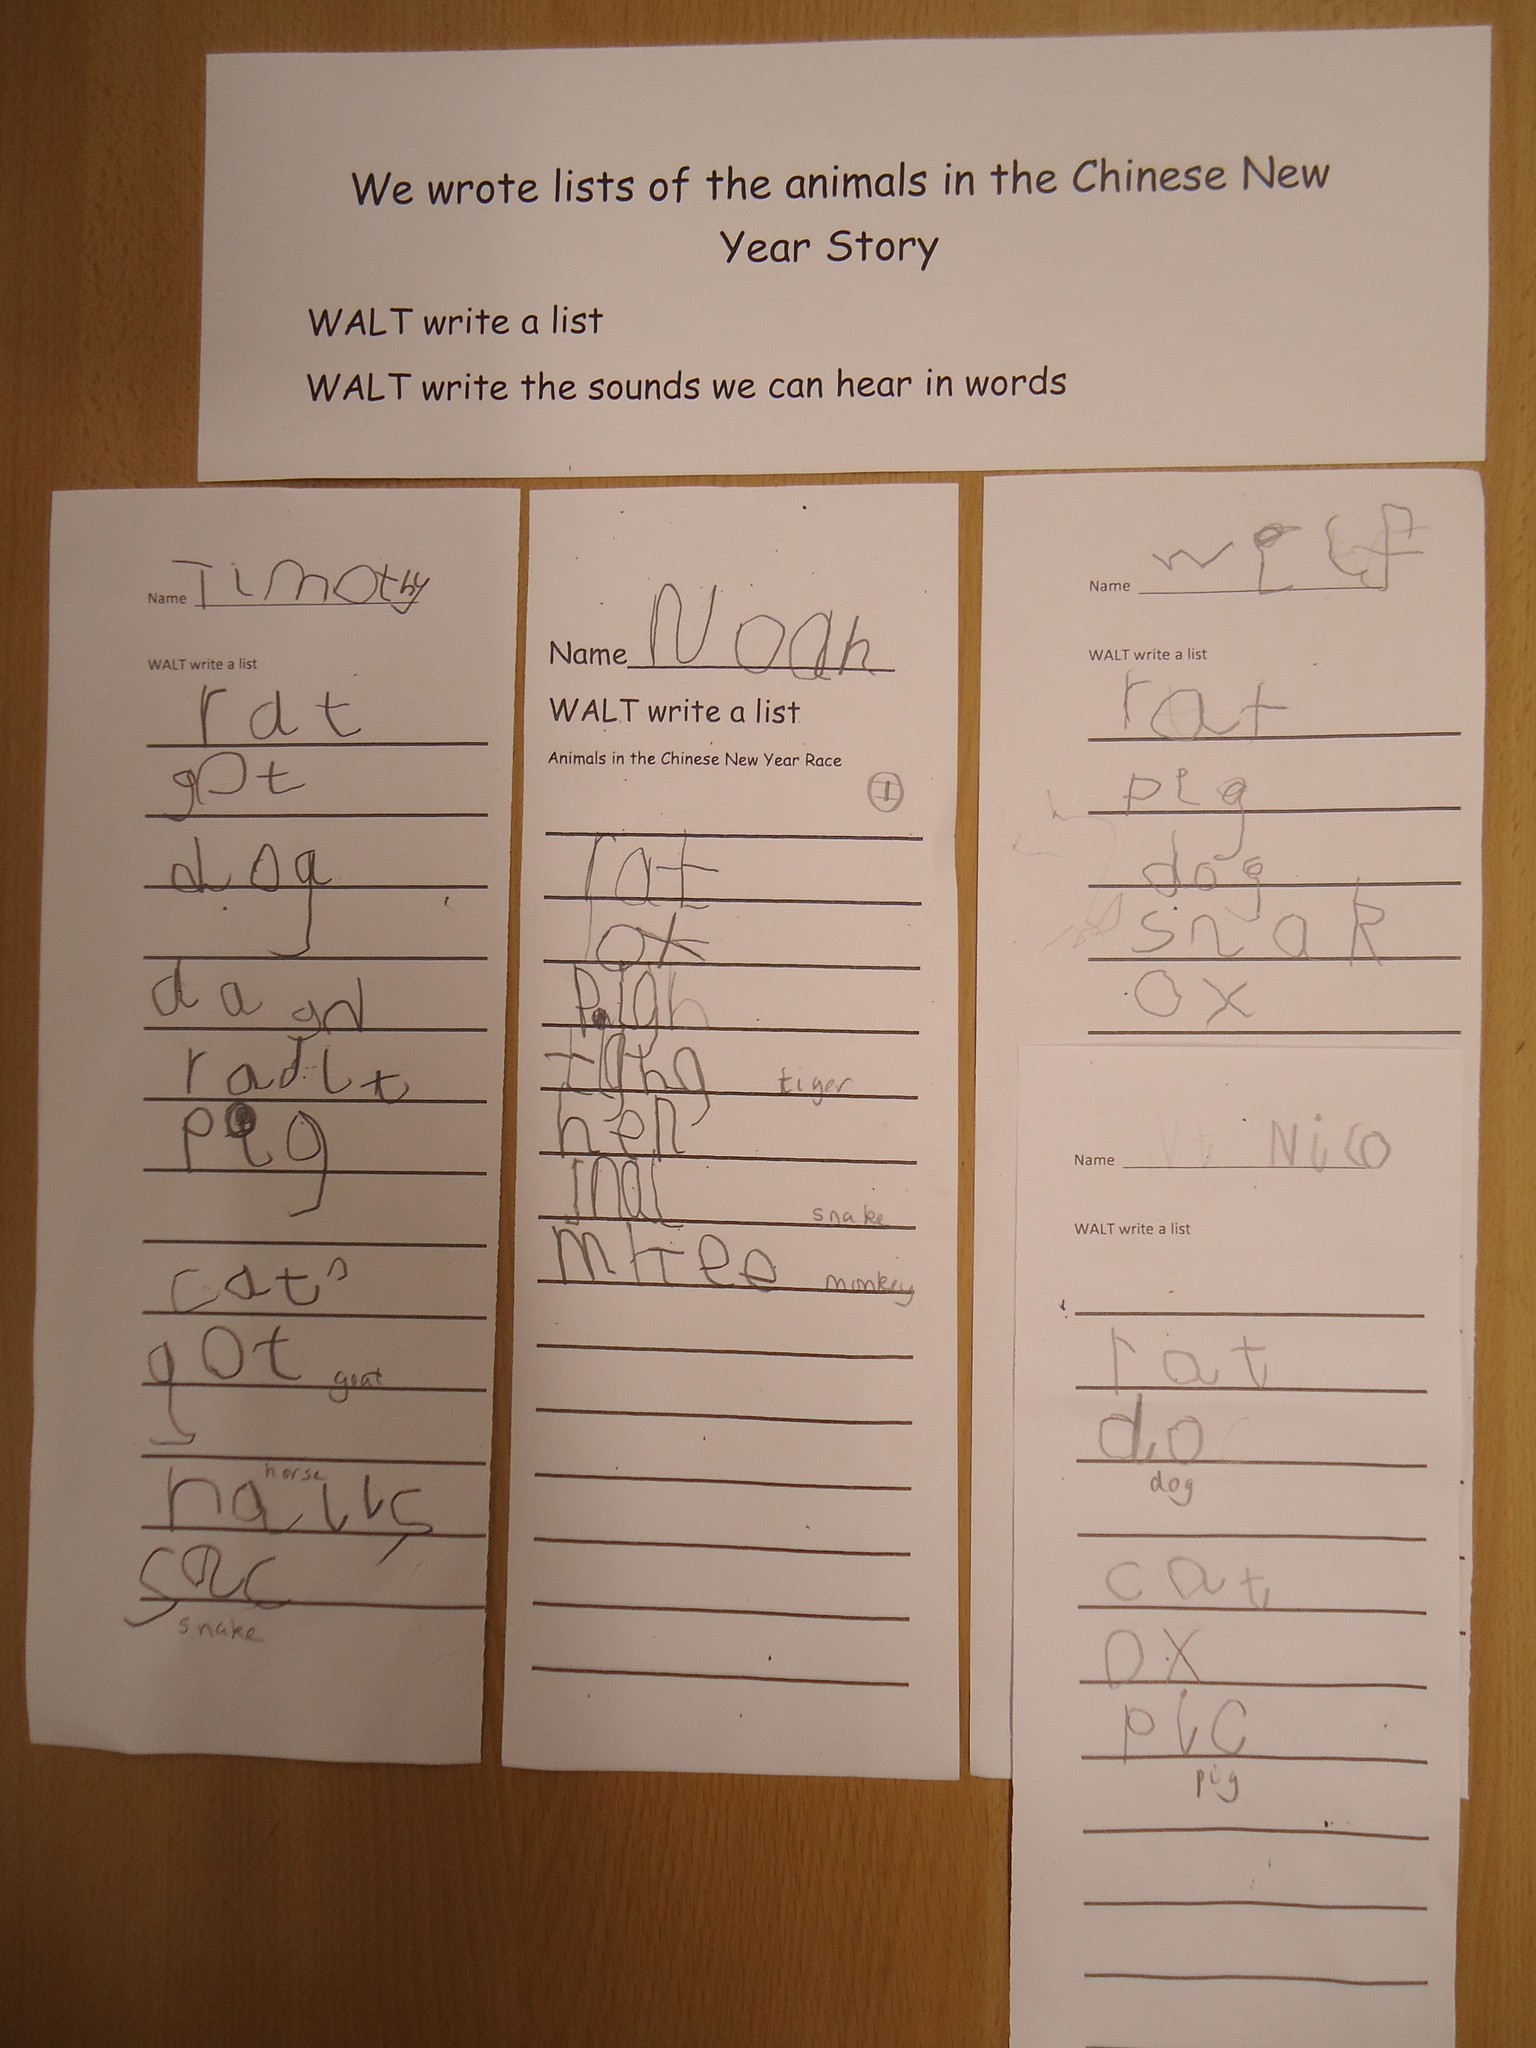 We wrote lists of the animals in the Chinese New
Year Story
WALT write a list
WALT write the sounds we can hear in words
Name Timothy
WALT write a list
rat
got
dog
dagd
radit
pig
cat
got goat
horse
sac
snake
Name Noah
WALT write a list
Animals in the Chinese New Year Race
1
rat
ox
pigh
tghg tiger
hen
snac snake
mkee monkey
Name Wilf
WALT write a list
rat
pig
dog
snak
ox
Name Nico
WALT write a list
rat
do
dog
cat
ox
pic
pig